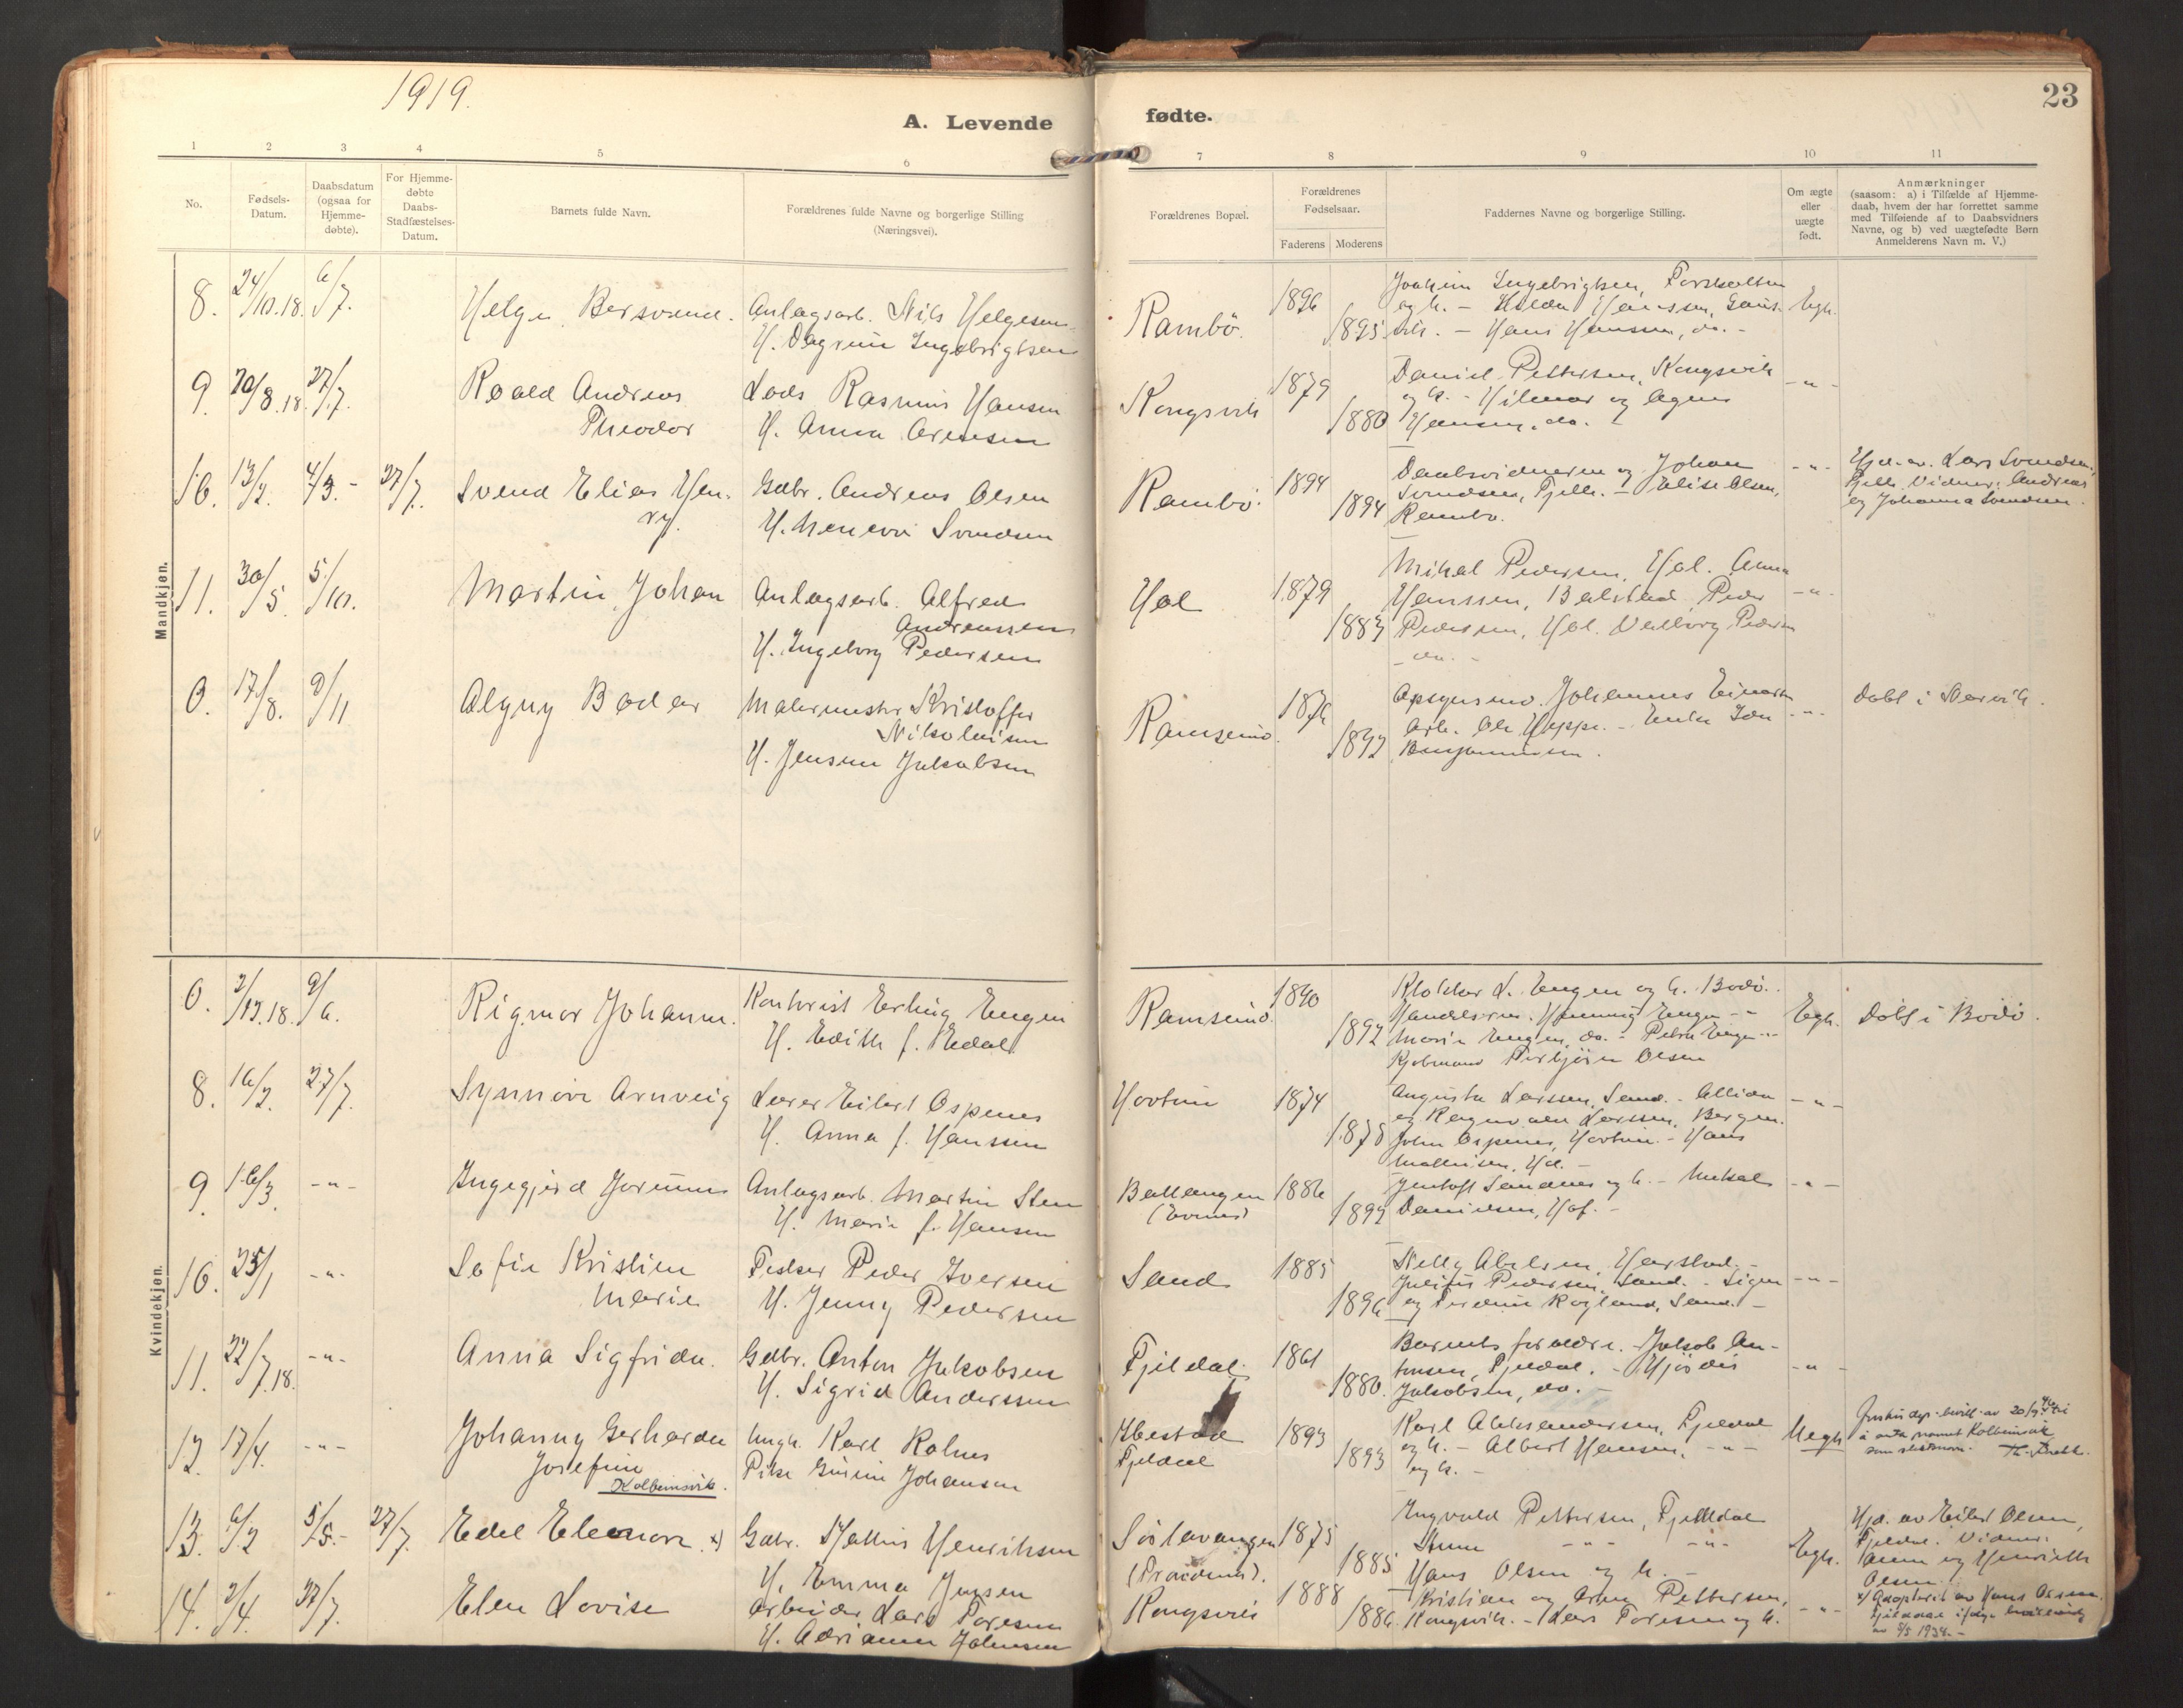 1919.
A. Levende
fødte.
23
1 2 3 4 5 6 7 8 9 10 11
No.
Fødsels-
Datum.
Daabsdatum
(ogsaa for
Hjemme-
døbte).
For Hjemme-
døbte
Daabs-
Stadfæstelses-
Datum.
Barnets fulde Navn.
Forældrenes fulde Navne og borgerlige Stilling
(Næringsvei).
Forældrenes Bopæl.
Forældrenes
Fødselsaar.
Faderens Moderens
Faddernes Navne og borgerlige Stilling.
Om ægte
eller
uægte
født.
Anmærkninger
(saasom: a) i Tilfælde af Hjemme-
daab, hvem der har forrettet samme
med Tilføiende af to Daabsvidners
Navne, og b) ved uægtefødte Børn
Anmelderens Navn m. V.)
Mandkjøn.
8. 24/10.18. 6/7. Helge Anlagsarb. Nils Helgesen
H. Dagrun Ingebrigtsen
Rambö. 1896
1895
Joakim Ingebrigtsen,
og h. - Hilda Hanssen,
- Hans Hanssen, do. -
Egh.
9. 20/8.18. 27/7. Roald Andreas
Theodor
Lods Rasmus Hansen
H. Anna Arentsen
Kongsvik 1879
1880
Daniel Pettersen, Kongsvik
og h. - Hilmar og Agnes
Hansen, do. -
- " -
10. 13/2. 4/3. - 27/7. Svend Elias Hen-
ry.
Gdbr. Andreas Olsen
H. Meneva Svendsen
Rambö. 1894
1894
Daabsvidnerne og Johan
Svendsen, Fjelld. - Elise Olsen,
Rambö.
- " -
Hjd. av. Lars Svendsen,
Fjelld. Vidner: Andreas
og Johanna Svendsen.
11. 30/5. 5/10. Martin Johan
Anlagsarb. Alfred
Andreassen
H. Ingeborg Pedersen
Hol 1879
1883
Mikal Pedersen, Hol. Anna
Hanssen, Balstad. Peder
Pedersen, Hol. Valborg Pedersen
- do. -
- " -
0. 17/8. 9/11 Algny Bodar
Malermester Kristoffer
Nikolaisen
H. Jensine Jakobsen
Ramsund. 1876
1892
Johannes Einarsen
Arb. Ole Heppe. - Enke
Benjaminsen.
- " -
Døbt i Narvik.
Kvindekjøn.
0. 2/12.18. 9/6. Rigmor Johanne.
Kontorist Erling Engen
H. Edith f. Hedal
Ramsund. 1890
1892
Klokker L. Engen og h. Bodö.
Henning Engen - "
Marie Engen, do. - Petra Engen - "
Kjøbmand Torbjörn Olsen
Egh. Døbt i Bodö.
8. 16/2. 27/7. Synnöve Arnveig
Lærer Eilert Ospenes
H. Anna f. Hanssen
Hovtun 1874
1878
Augusta Larssen, Sand. - Allida
og Ragnvald Larssen, Bergen.
John Ospenes, Hovtun. - Hans
Mathisen, Hol. -
- " -
9. 16/3. - " - Ingegjerd Jorunn
Anlagsarb. Martin Sten
H. Marie f. Hansen
Ballangen
(Evenes)
1886
1892
Sandnes og h. - Mikal
Danielsen, Hof. -
- " -
10. 25/1 - " - Sofie Kristine
Marie
Fisker Peder Iversen
H. Jenny Pedersen
Sand 1885
1896
Nelly Abelsen, Harstad. -
Julius Pedersen, Sand. - Signe
og Fredrik Rogland, Sand. -
- " -
11. 22/7.18. - " - Anna Sigfrida.
Gdbr. Anton Jakobsen
H. Sigrid Anderssen
Fjeldal. 1861
1880.
Barnets foraldre. - Jakob An-
tonsen, Fjeldal. - Hjördis
Jakobsen, do. -
- " -
12. 17/4. - " - Johanny Gerharda
Josefine
Kolbeinsvik.
Ungk. Karl Rolnes
Pike Gusine Johansen
Ibestad
Fjeldal
1893
1893
Karl Aleksandersen, Fjeldal
og h. - Albert Hansen, - " -
og h. -
Uegh.
Justis dep. bevill. av 20/7
å anta navnet Kolbeinsvik
som slektsnavn.
13. 6/2 5/5. - 27/7. Edel Eleonore. x)
Gdbr. Mathis Henriksen
H. Emma Jensen
Sörlavangen
(Trondenes).
1875
1885
Ingvald Pettersen, Fjelldal
- " - - " -
Hans Olsen og h. -
Egh.
Hjd. av Eilert Olsen,
Fjeldal. Vidner:
Anna og Henriette
Olsen.
x) Adoptert av Hans Olsen,
Fjeldal ifölge bevilling
av 3/5 1934. -
14. 2/4. 27/7. Elen Lovise
Arbeider Lars Toresen
H. Adrianna Johansen
Kongsvik 1888
1886.
Kristian og Arna Pettersen,
Kongsvik. - Lars Toresen og h.
- " -